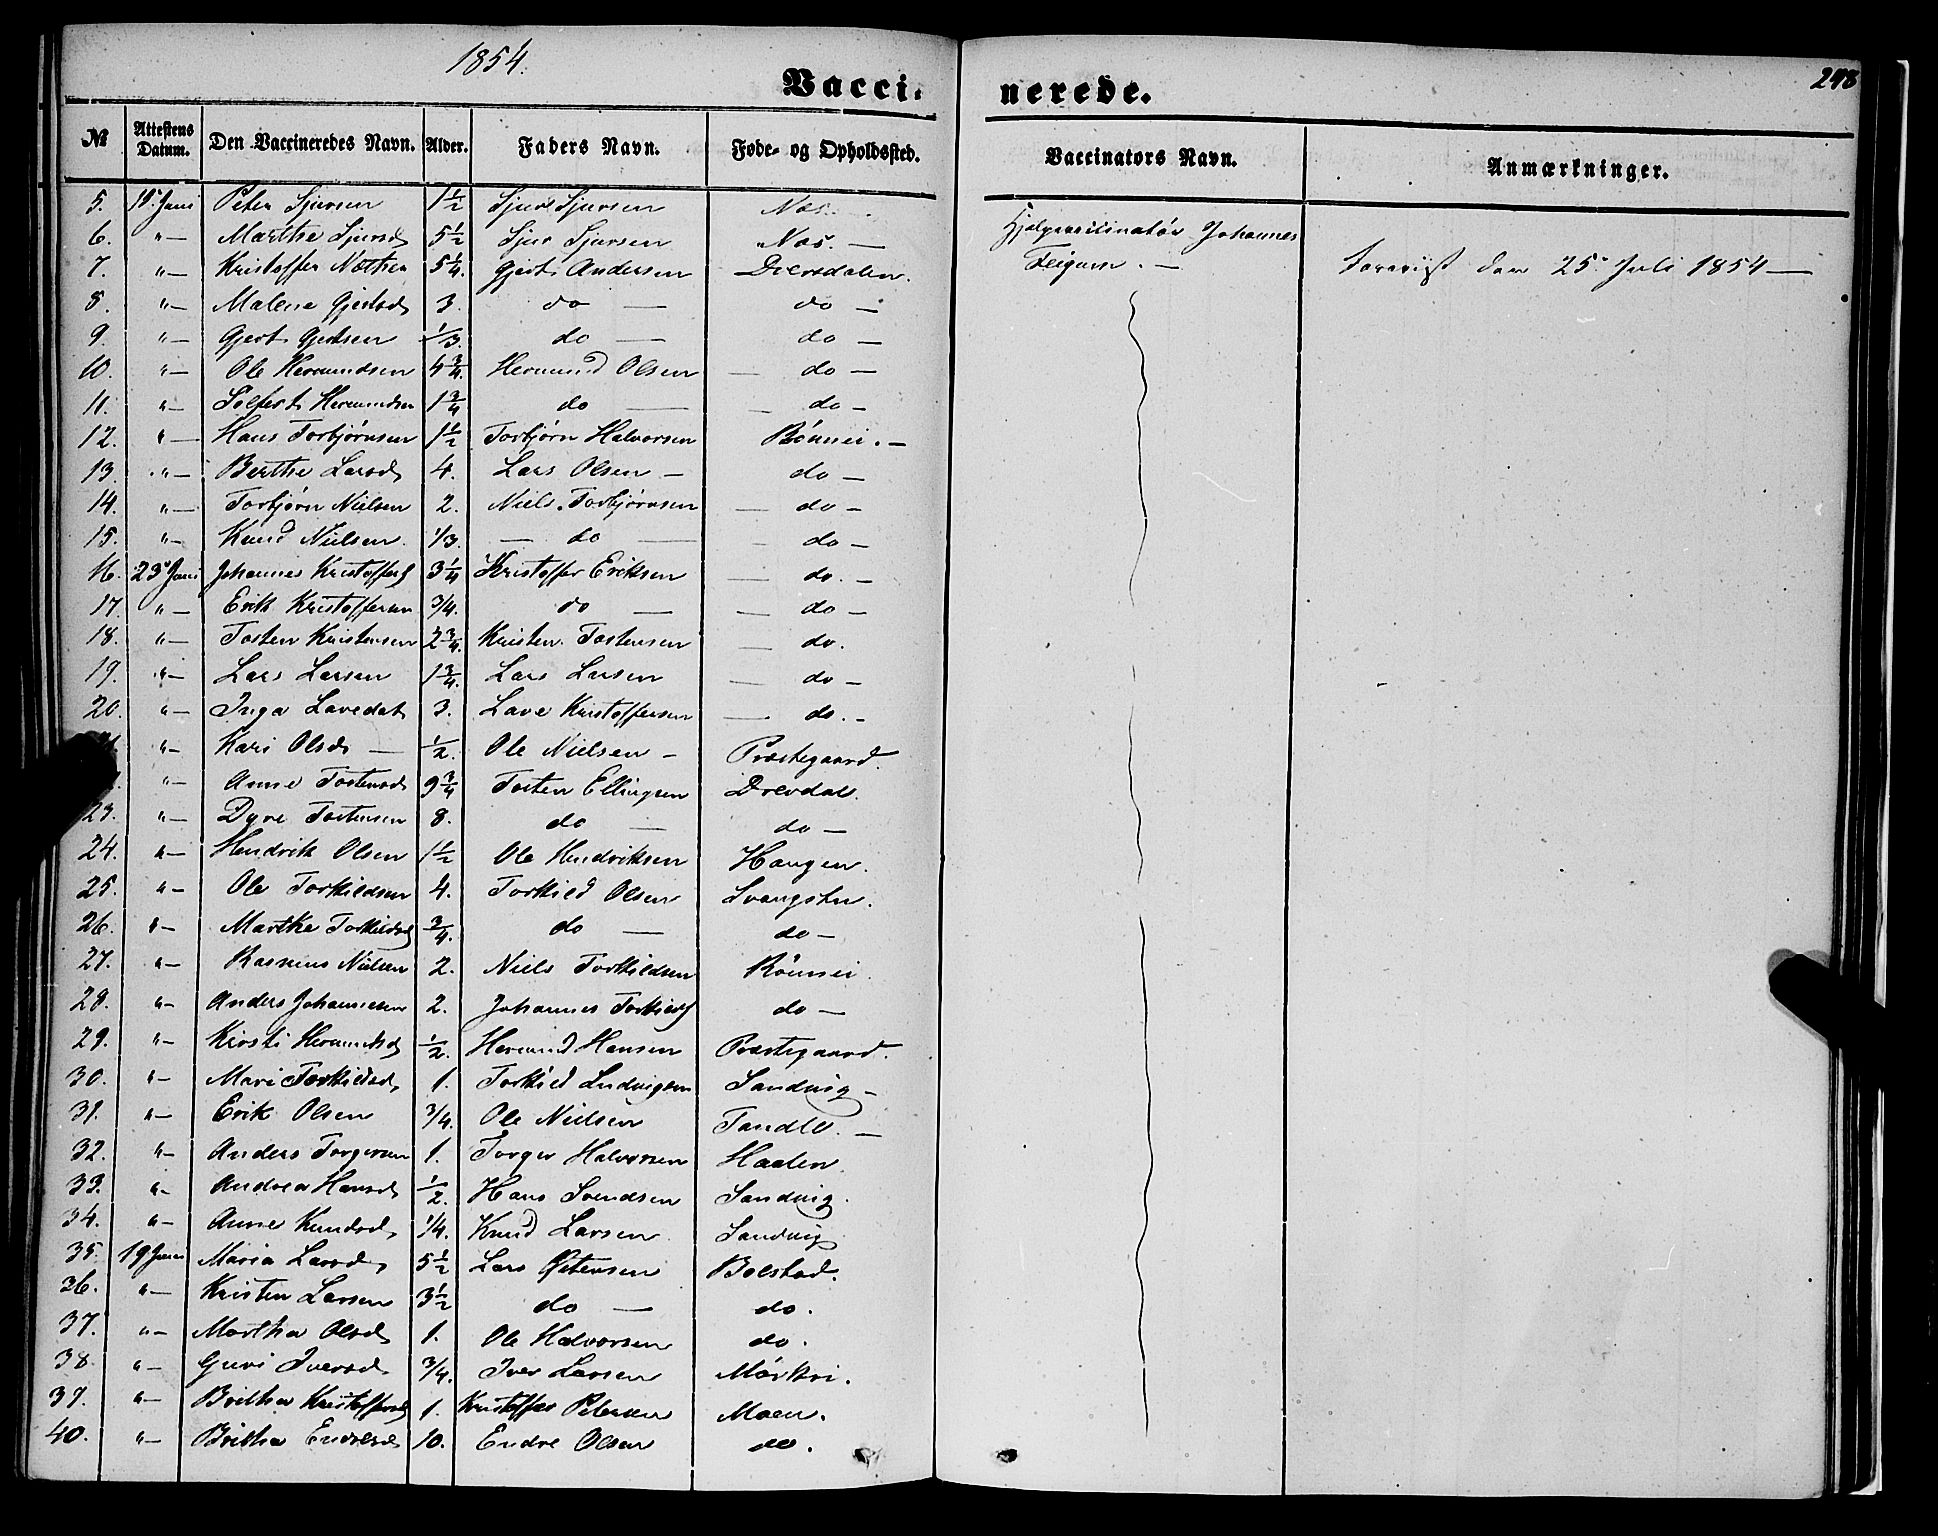 1854.
Vacci-
nerede.
248
№
Attestens Datum.
Den Vaccineredes Navn.
Alder.
Faders Navn.
Føde- og Opholdssted.
Vaccinators Navn.
Anmærkninger.
5. 18 Juni Peter Sjursen 1½ Sjur Sjursen Næs.
6. "— Marthe Sjursd 5½ Sjur Sjursen Næs. —
7. "— Kristoffer 5¼ Gjert Andersen
8. "— Malene Gjertsd 3. do — do —
9. "— Gjert Gjertsen 1/3. do — do —
10. "— Ole Hermundsen 4¾ Hermund Olsen — do —
11. "— Hermundsen 1¾ do — — do —
12. "— Hans Torbjørnsen 1½ Torbjørn Halvorsen Rønnei. —
13. "— Berthe Larsd 4. Lars Olsen — do —
14. "— Torbjørn Nielsen 2. Niels Torbjørnsen — do —
15. "— Knud Nielsen 1/3. — do — — do —
16. 23 Juni Johannes Kristoffers 3¼ Kristoffer Eriksen — do. —
17. "— Erik Kristoffersen 3/4. do — — do —
18. "— Tosten Kristensen 2¾ Kristen Tostensen — do.
19. "— Lars Larsen 1¾ Lars Larsen — do —
20. "— Inga Lavedat 3. Lave Kristoffersen — do. —
"— Kari Olsd — ½. Ole Nielsen — Præstegaard.
"— Anne Tostensd 9¾ Tosten Ellingsen Drevdal.
23. "— Dyre Tostensen 8. do — do —
24. "— Hendrik Olsen 1½ Ole Hendriksen Haugen.
25. "— Ole Torkildsen 4. Torkild Olsen
26. "— Marthe Torkildsd ¾. do — do —
27. "— Rasmus Nielsen 2. Niels Torkildsen Rønnei.
28. "— Anders Johannesen 2. Johannes Torkilds do —
29. "— Kirsti Hermundsd ½. Hermund Hansen Præstegaard.
30. "— Mari Torkildsd 1. Torkild Ludvigsen Sandvig —
31. "— Erik Olsen 3/4. Ole Nielsen Tandle. —
32. "— Anders Torgersen 1. Torger Halvorsen Haalen.
33. "— Andrea Hansd ½. Hans Svendsen Sandvig.
34. "— Anne Knudsd 1/4. Knud Larsen Sandvig
35. 19 Juni Maria Larsd 5½ Lars Østensen Bolstad.
36. "— Kristen Larsen 3½ do — do.
37. "— Martha Olsd 1. Ole Halvorsen do.
38. "— Guri Iversd 3/4. Iver Larsen Mørkri.
39. "— Britha Kristoffersd 1. Kristoffer Petersen Moen.
40. "— Britha Endresd 10. Endre Olsen do.
Hjelpevaccinatør Johannes
Feigum. —
den 25. Juli 1854 —